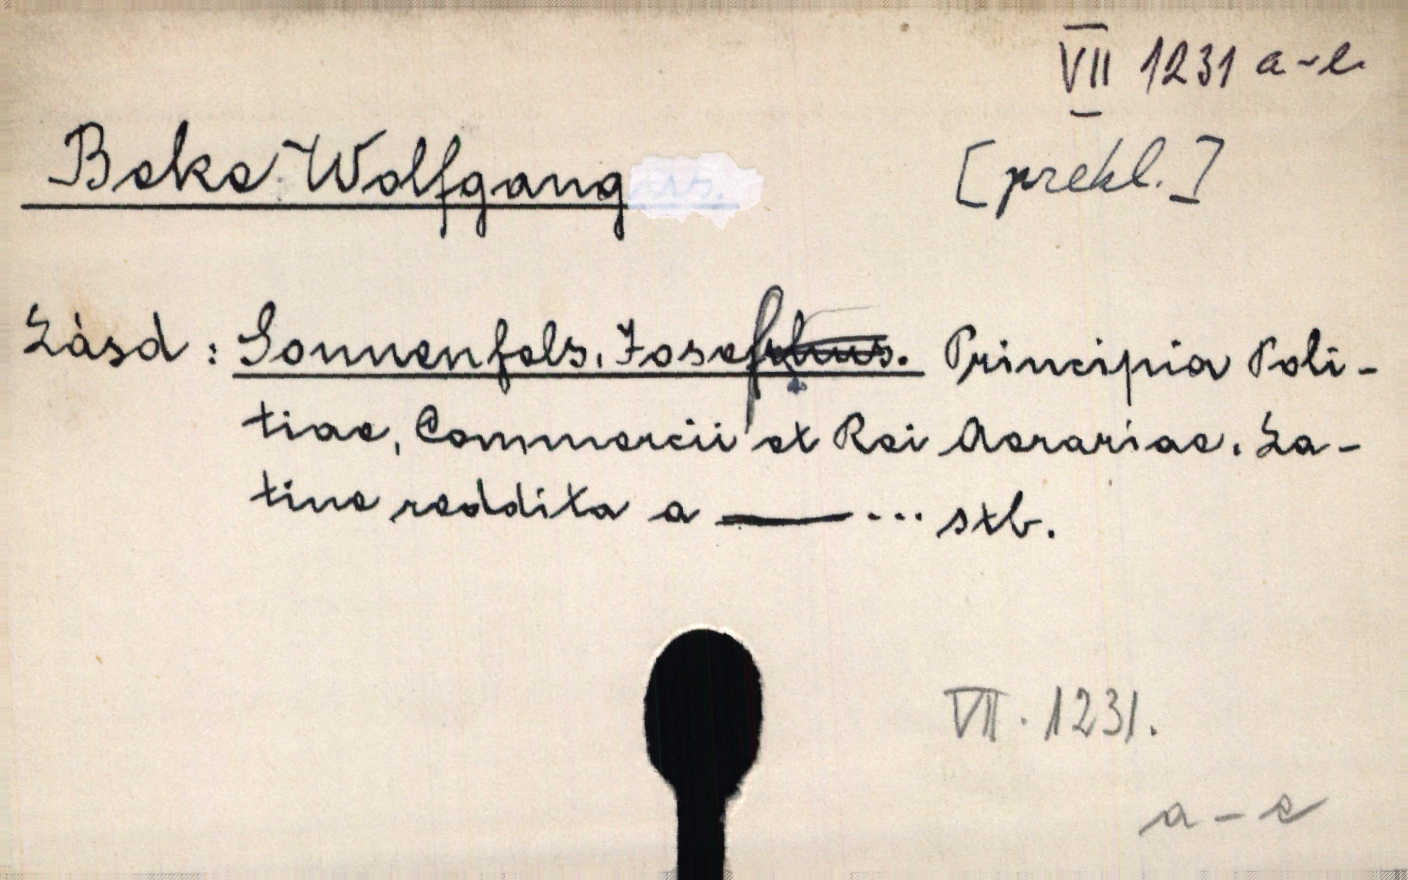 VII 1231 a-e
Beke Wolfgang
[prekl.]
Lásd: Sonnenfels, Josef Principia Poli-
tiae, Commercii et Rei Aerariae. La-
tine reddita a —— ... stb.
VII. 1231.
a-e